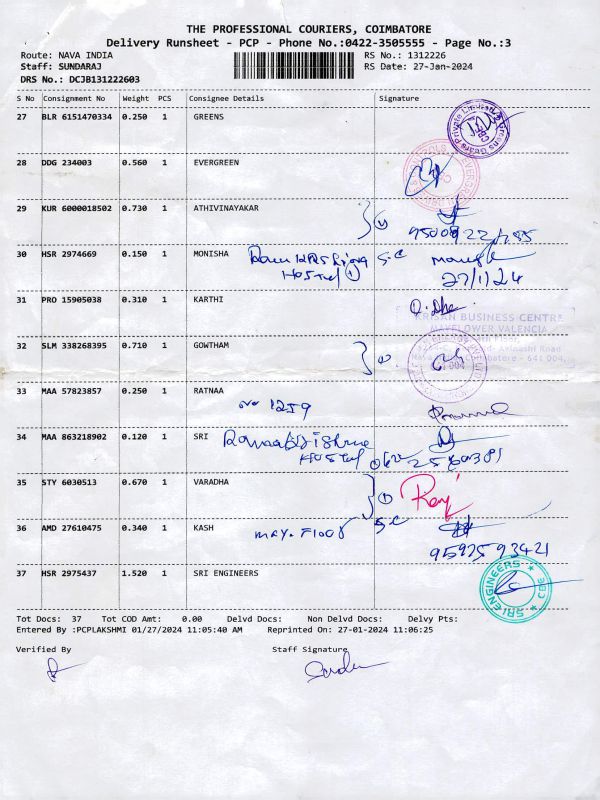 THE PROFESSIONAL COURIERS, COIMBATORE
Delivery Runsheet - PCP - Phone No.:0422-3505555 - Page No.:3
Route: NAVA INDIA RS No.: 1312226
Staff: SUNDARAJ RS Date: 27-Jan-2024
DRS No.: DCJB131222603
S No Consignment No Weight PCS Consignee Details Signature
27 BLR 6151470334 0.250 1 GREENS
28 DDG 234003 0.560 1 EVERGREEN
29 KUR 6000018502 0.730 1 ATHIVINAYAKAR
30 HSR 2974669 0.150 1 MONISHA
Hostel
27/1/24
31 PRO 15905038 0.310 1 KARTHI
KRISAN BUSINESS CENTRE
MAYFLOWER VALENCIA
32 SLM 338268395 0.710 1 GOWTHAM
33 MAA 57823857 0.250 1 RATNAA
1259
34 MAA 863218902 0.120 1 SRI
Hostel
35 STY 6030513 0.670 1 VARADHA
36 AMD 27610475 0.340 1 KASH
9597593421
37 HSR 2975437 1.520 1 SRI ENGINEERS
SRI ENGINEERS ★ CBE ★
Tot Docs: 37 Tot COD Amt: 0.00 Delvd Docs: Non Delvd Docs: Delvy Pts:
Entered By :PCPLAKSHMI 01/27/2024 11:05:40 AM Reprinted On: 27-01-2024 11:06:25
Verified By Staff Signature